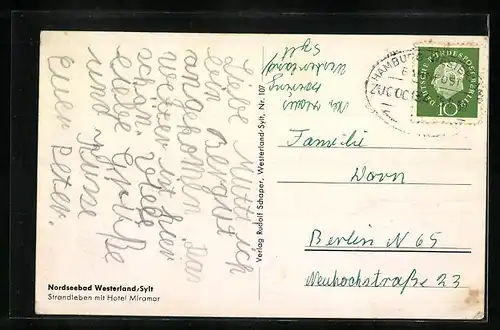 Liebe Mutti ich
bin Berghst
angekommen. Das
Wetter ist hier
schön. Viele
liebe Grüße
und Küsse
Euer Peter.
Nordseebad Westerland/Sylt
Strandleben mit Hotel Miramar
Verlag Rudolf Schaper, Westerland-Sylt, Nr. 107
Westerland/
Sylt
HAMBURG
ZUG
DEUTSCHE BUNDESPOST BERLIN
10
Familie
Dorn
Berlin N 65
Neuhochstraße 23